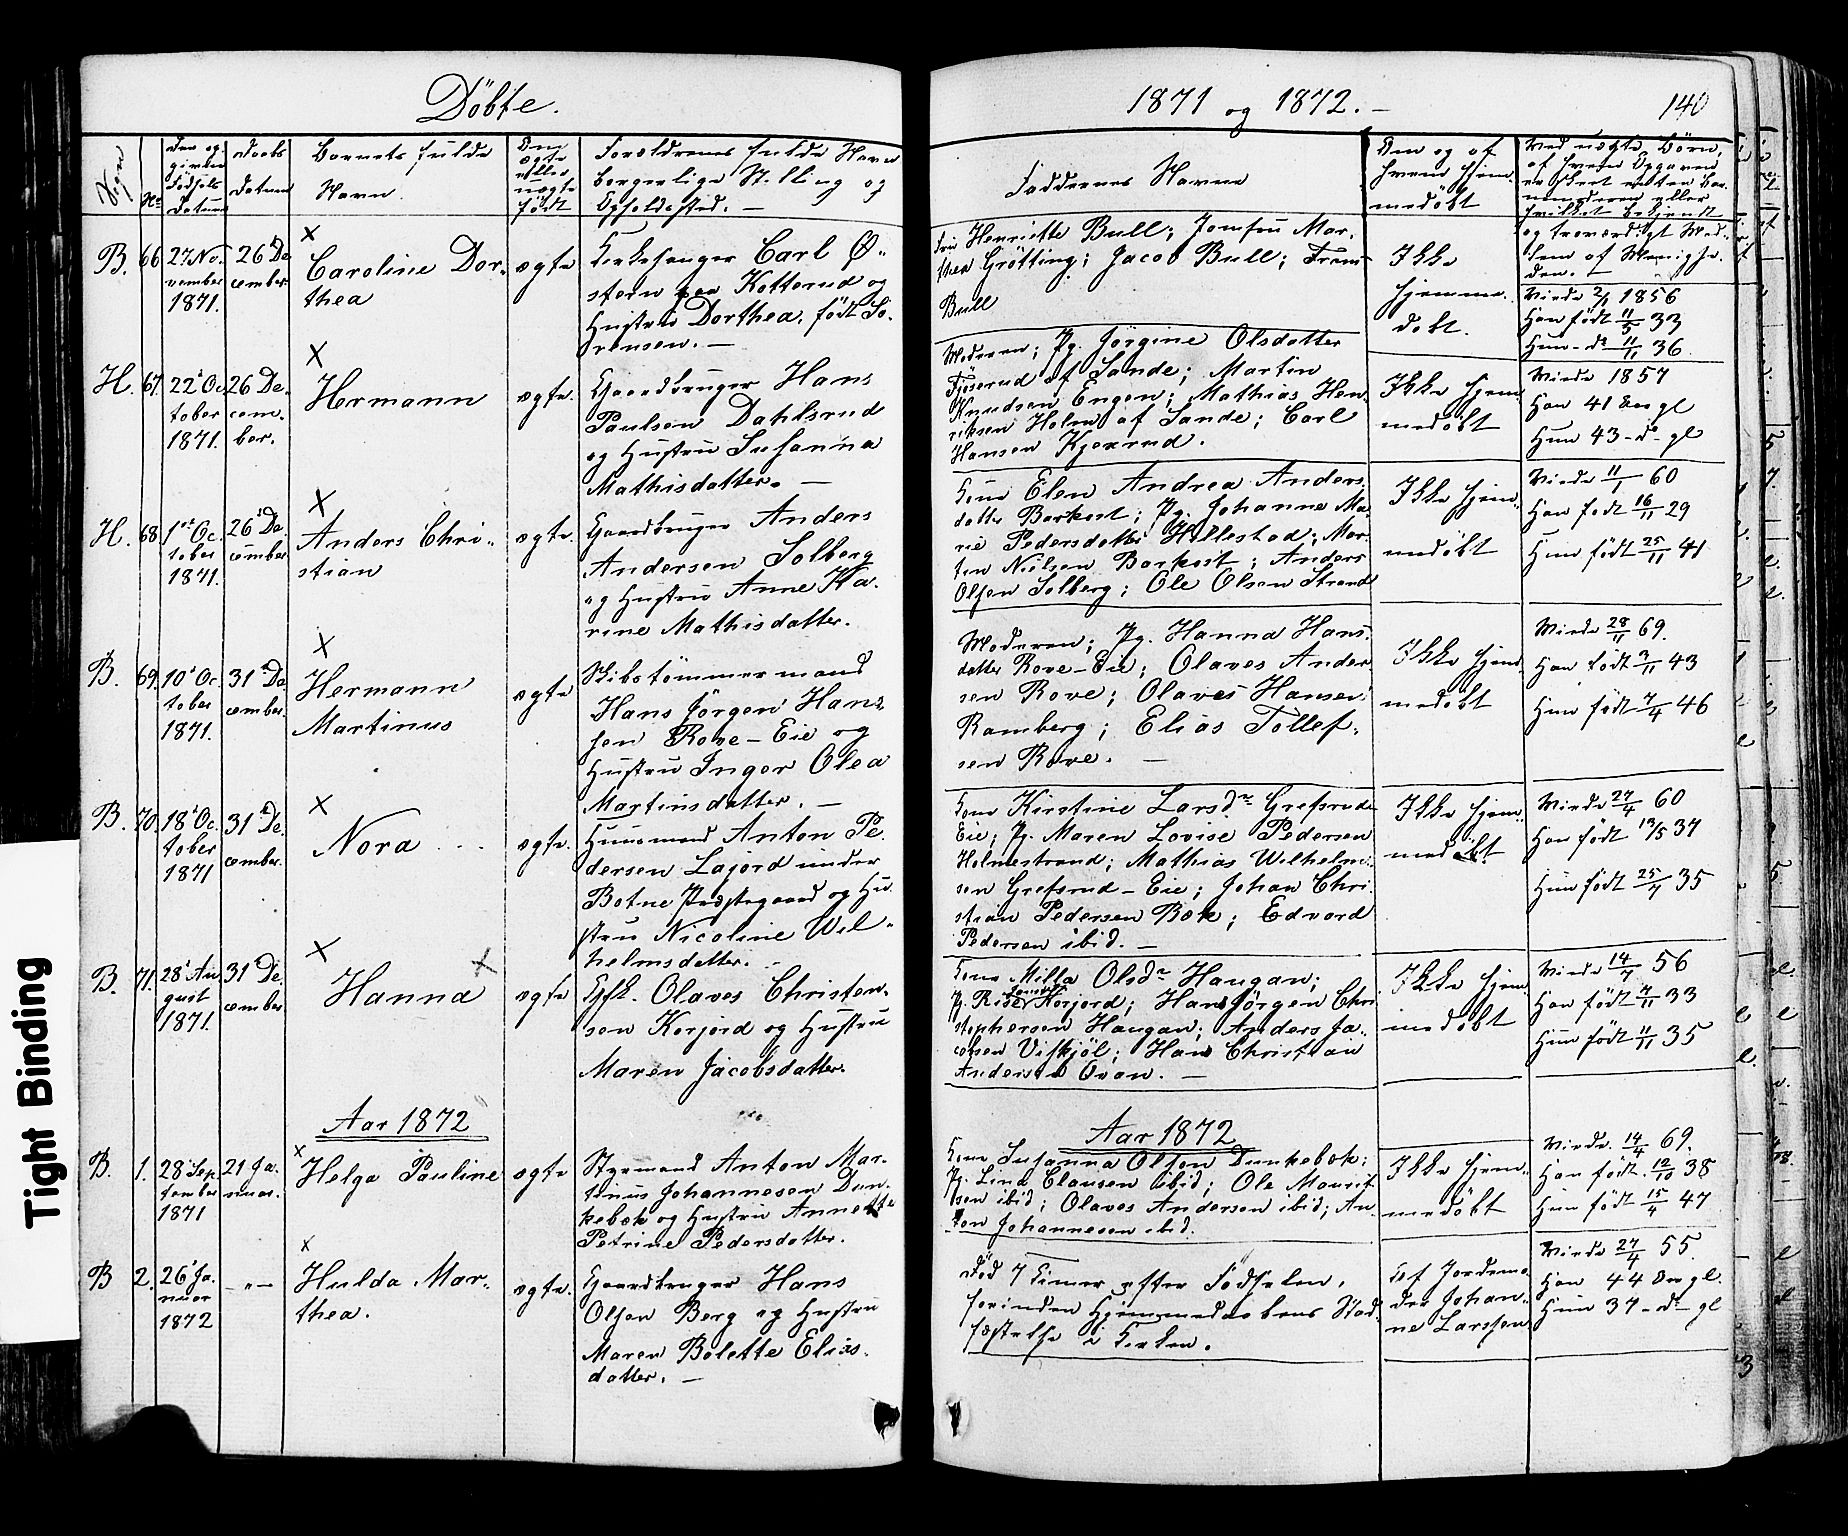 Döbte.
1871 og 1872. -
140
Sogn
No
Den og
given
Födsels
Datum
Daabs
Datum
Barnets fulde
Navn.
Om
ægte
eller
uægte
födt
Forældrenes fulde Navn
borgerlige Stilling og
Opholdssted. -
Faddernes Navne
Om og af
hvem hjem-
medöbt
Ved uægte Börn,
B. 66 27 No-
vember
1871.
26 De
cember
Caroline Dor-
thea
ægte
Kirkesanger Carl Ø-
stern paa Kotterud og
Hustru Dorthea, född So-
rensen. -
Fru Henriette Bull; Jomfru Mar-
then Grötting; Jacob Bull; Frants
Bull
Ikke
hjemme-
döbt.
og troværdigt Med-
lem af Menighe-
den. -
Viede 2/1 1856
Han födt 11/5 33
Hun - do 11/11 36
H. 67. 22 Oc
tober
1871.
26 De-
cem-
ber.
Hermann
ægte.
Gaardbruger Hans
Paulsen Dahlsrud
og Hustru Susanna
Mathisdatter. -
Moderen; Pg. Jörgine Olsdatter
af Sande; Martin
Knudsen Engen; Mathias Hen-
riksen Holm af Sande; Carl
Hansen Kjexrud.
Ikke hjem-
medöbt
Viede 1857
Han 41 Aar gl
Hun 43 - do - gl
H. 68. 1ste Oc-
tober
1871.
26 De-
cember
Anders Chri-
stian
ægte.
Gaardbruger Anders
Andersen Solberg
og Hustru Anne Ka-
rine Mathisdatter.
Kone Elen Andrea Anders-
datter Borkost; Pg. Johanne Ma-
rie Pedersdatter Hillestad; Mor-
ten Nielsen Borkost; Anders
Olsen Solberg; Ole Olsen Strand
Ikke hjem-
medöbt
Viede 11/1 60
Han födt 16/11 29
Hun födt 25/11 41
B. 69. 10 Oc-
tober
1871.
31 De
cember.
Hermann
Martinus
ægte
Skibstömmermand
Hans Jörgen Han-
sen Rove-Eie og
Hustru Inger Olea
Martinsdatter. -
Moderen; Pg. Hanna Hans-
datter Rove-Eie; Olaves Ander
sen Rove; Olaves Hansen
Ramberg; Elias Tollef-
sen Rove. -
Ikke hjem
medöbt
Viede 28/11 69.
Han födt 3/11 43
Hun födt 7/4 46
B. 70. 18 Oc-
tober
1871
31 De-
cember.
Nora
ægte.
Huusmand Anton Pe
dersen Lajord under
Botne Præstegaard og Hu-
stru Nicoline Wil-
helmsdatter. -
Kone Kirstine Larsdr Grefsrud
Eie; Pg. Maren Lovise Pedersen
Holmestrand; Mathias Wilhelm-
sen Grefsrud-Eie; Johan Chri-
stian Pedersen Bæk; Edvard
Pedersen ibid. -
Ikke hjem-
medöbt
Viede 27/4 60
Han födt 13/5 37
Hun födt 25/7 35
B. 71. 28 Au
gust
1871.
31 De-
cember
Hanna
ægte
Gfbr. Olaves Christen-
sen Korjord og Hustru
Maren Jacobsdatter.
Kone Milla Olsdr Haugan;
Korjord; Hans Jörgen Chri
stophersen Haugan; Anders Ja-
cobsen Vifkjöl; Hans Christian
Andersen Ovan. -
Ikke hjem-
medöbt
Viede 14/7 56
Han födt 7/11 33
Hun födt 11/11 35
Aar 1872
Aar 1872
B. 1. 28 Sep
tember
1871
21 Ja-
nuar.
Helga Pauline
ægte
Styrmand Anton Mar-
tinus Johannesen Dun-
kebæk og Hustru Annette
Petrine Pedersdatter.
Kone Susanna Olsen Dunkebæk;
Pg. Lina Clausen ibid; Ole Maurit
sen ibid; Olaves Andersen ibid; An-
ton Johannesen ibid.
Ikke hjem-
medöbt
Viede 14/4 69.
Han födt 12/10 38
Hun födt 15/4 47
B 2. 26 Ja-
nuar
1872
- " -
Hulda Mar-
thea.
ægte.
Gaardbruger Hans
Olsen Berg og Hustru
Maren Bolette Elias-
datter. -
Död 7 Timer efter Födselen,
forinden Hjemmedaabens Stad-
fæstelse i Kirken.
Af Jordemo
der Johan-
ne Larssen
Viede 27/4 55.
Han 44 Aar gl.
Hun 37 - do - gl
Tight Binding